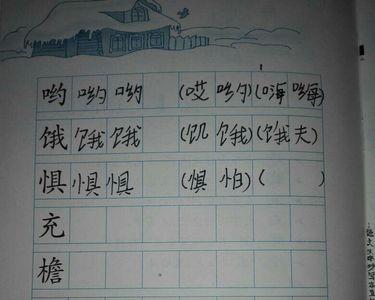 哟 哟 哟 (哎 哟)(嗨 哟)
饿 饿 饿 (饥 饿)(饿 夫)
惧 惧 惧 (惧 怕)( )
充
檐